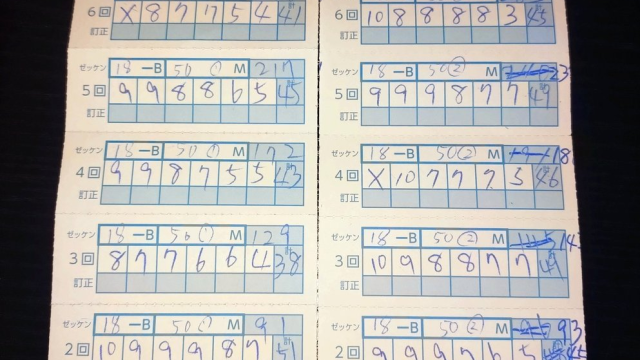 6回 X 8 7 7 5 4 41
訂正
ゼッケン 18 -B 50 ① M 217
5回 9 9 8 8 6 5 45
訂正
ゼッケン 18 -B 50 ① M 172
4回 9 9 8 7 5 5 43
訂正
ゼッケン 18 -B 50 ① M 129
3回 8 7 7 6 6 4 38
訂正
ゼッケン 18 -B 50 ① M 91
2回 10 9 9 9 8 7
6回 10 8 8 8 8 3 45
訂正
ゼッケン 18 -B 50 ② M
5回 9 9 9 8 7 7 49
訂正
ゼッケン 18 -B 50 ② M
4回 X 10 7 7 7 5 46
訂正
ゼッケン 18 -B 50 ② M
3回 10 9 8 8 7 7 49
訂正
ゼッケン 18 -B 50 ② M 93
2回 9 9 9 7 6 5 45